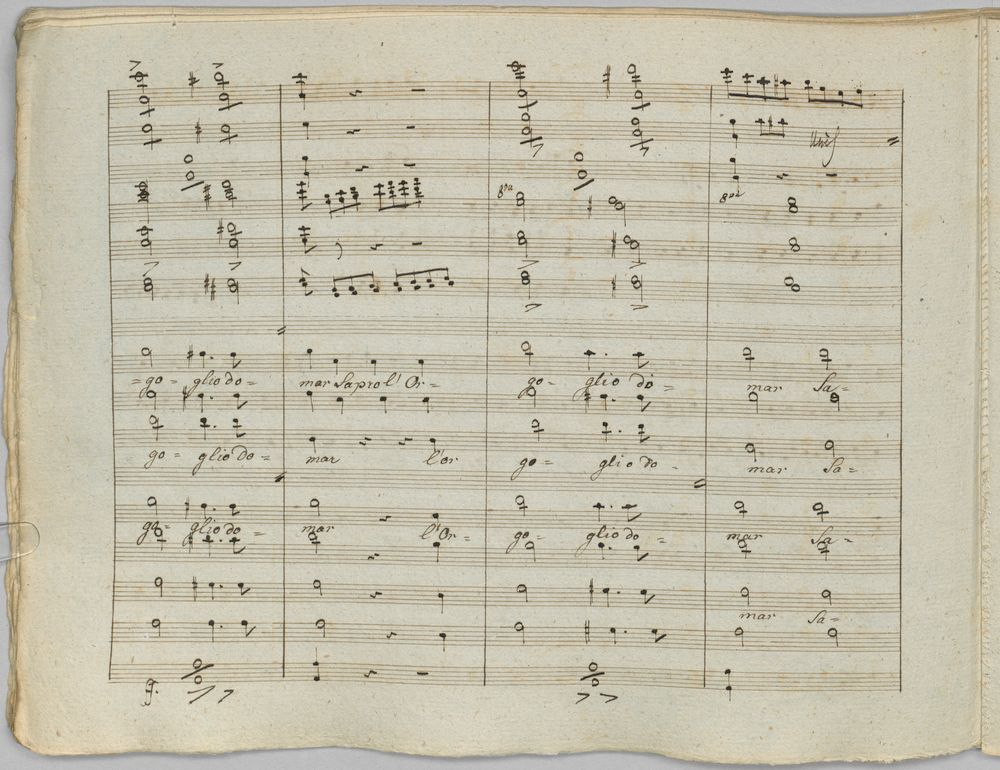 8va 8va
Unis
=go= glio do= mar Sapro l'Or= go= glio do= mar Sa=
go= glio do= mar l'or go= glio do= mar Sa=
go= glio do= mar l'Or= go= glio do= mar Sa=
mar Sa=